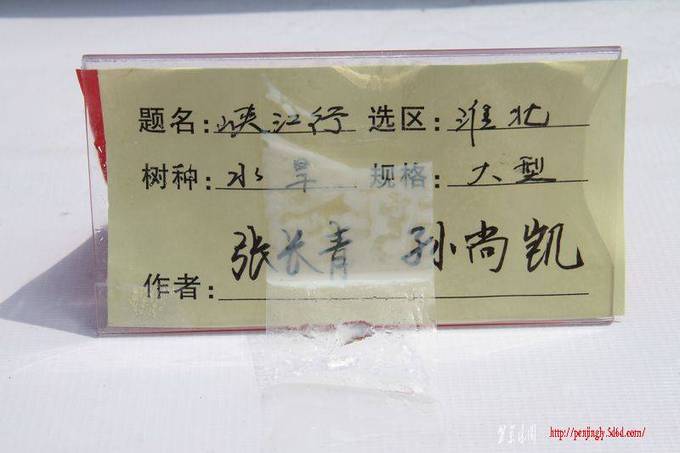 题名:峡江行 选区:淮北
树种:水旱 规格:大型
作者:张长青 孙尚凯
http://penjingly.5d6d.com/